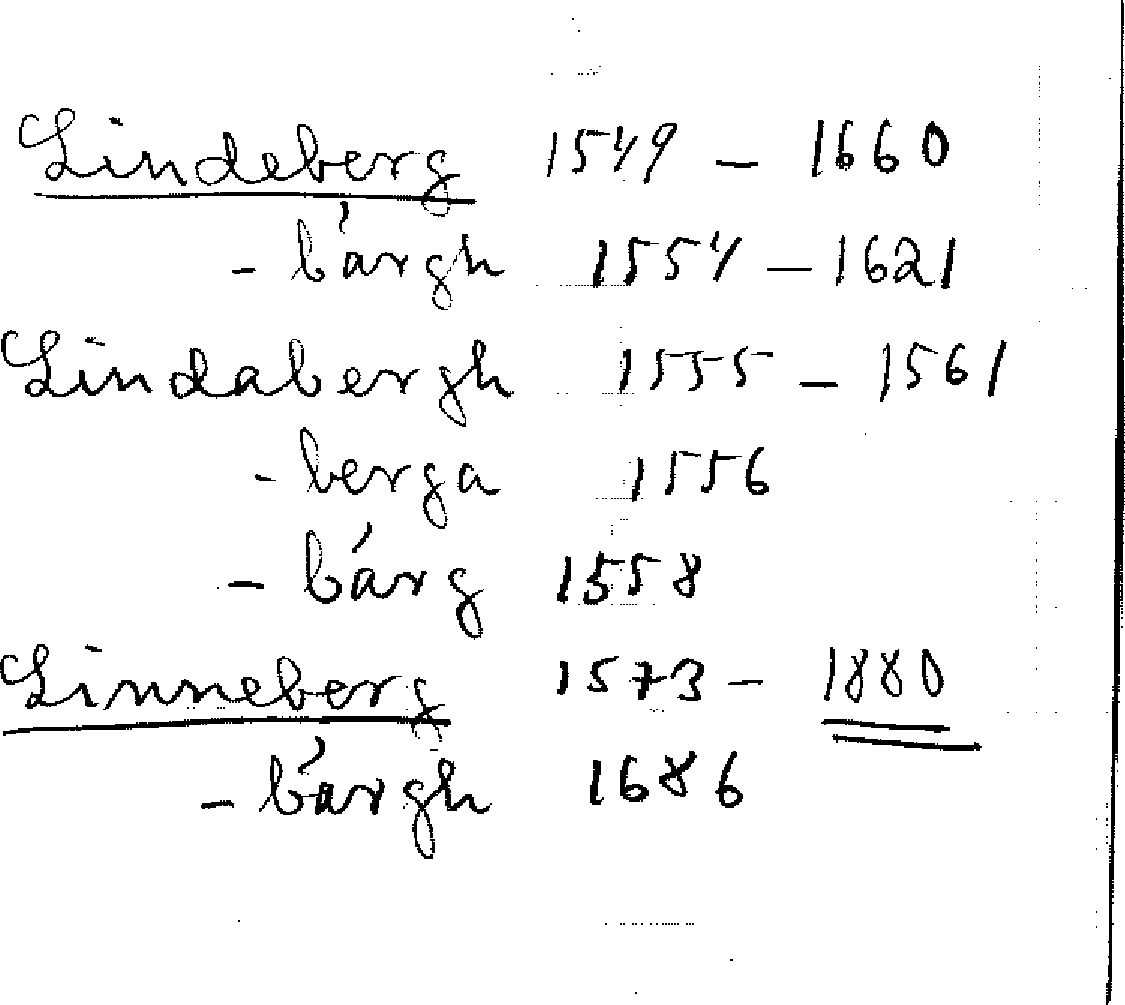 Lindeberg 1549 – 1660
- bárgh 1554 – 1621
Lindabergh 1555 – 1561
- berga 1556
- bárg 1558
Linneberg 1573 – 1880
- bárgh 1686